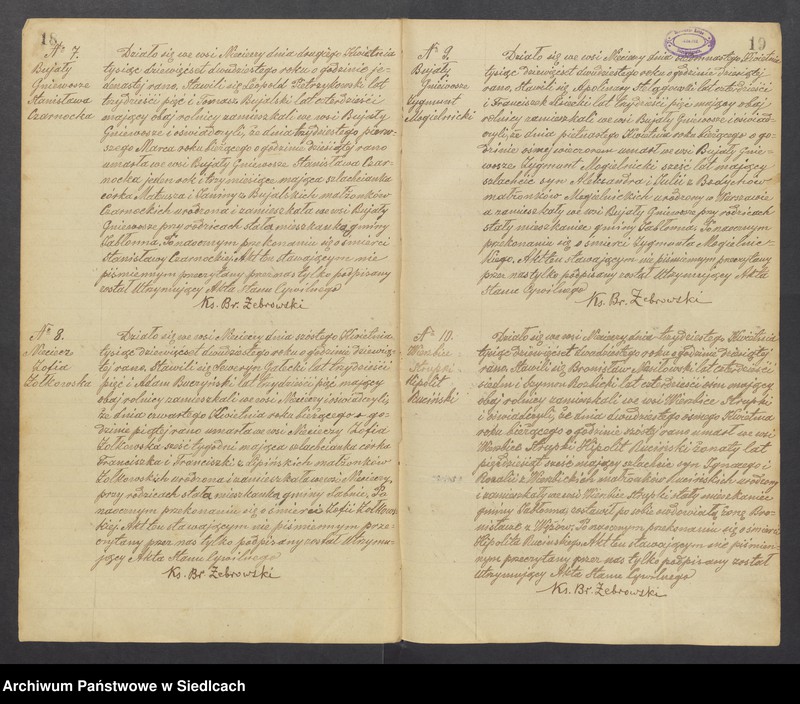 18
№ 7.
Bujały
Gniewosze
Stanisława
Czarnocka
Działo się we wsi Nieciczy dnia drugiego Kwietnia
tysiąc dziewięćset dwudziestego roku o godzinie je-
denastej rano, Stawili się Leopold Pietrzykowski lat
trzydzieści pięć i Tomasz Bujalski lat czterdzieści
mający obaj rolnicy zamieszkali we wsi Bujały
Gniewosze i oświadczyli, że dnia trzydziestego pierw-
szego Marca roku bieżącego o godzinie dziesiątej rano
umarła we wsi Bujały Gniewosze Stanisława Czar-
nocka jeden rok i trzy miesiące mająca szlachcianka
córka Mateusza i Janiny z Bujalskich małżonków
Czarnockich urodzona i zamieszkała we wsi Bujały
Gniewosze przy rodzicach stała mieszkanka gminy
Jabłonna, Po naocznym przekonaniu się o śmierci
Stanisławy Czarnockiej Akt ten stawającym nie
piśmiennym przeczytany przez nas tylko podpisany
został Utrzymujący Akta Stanu Cywilnego
Ks. Br. Żebrowski
№ 8.
Niecicz
Zofia
Żółkowska
Działo się we wsi Nieciczy dnia szóstego Kwietnia
tysiąc dziewięćset dwudziestego roku o godzinie dziewią-
tej rano, Stawili się Seweryn Gałecki lat trzydzieści
pięć i Adam Buczyński lat trzydzieści pięć mający
obaj rolnicy zamieszkali we wsi Nieciczy i oświadczyli,
że dnia czwartego Kwietnia roku bieżącego o go-
dzinie piątej rano umarła we wsi Nieciczy Zofia
Żółkowska sześć tygodni mająca szlachcianka córka
Franciszka i Franciszki z Lipińskich małżonków
Żółkowskich urodzona i zamieszkała we wsi Nieciczy
przy rodzicach stała mieszkanka gminy Sabnie, Po
naocznym przekonaniu się o śmierci Zofii Żółkows-
kiej Akt ten stawającym nie piśmiennym prze-
czytany przez nas tylko podpisany został Utrzymu-
jący Akta Stanu Cywilnego
Ks. Br. Żebrowski
19
№ 9.
Bujały
Gniewosze
Zygmunt
Mogielnicki
Działo się we wsi Nieciczy dnia Kwietnia
tysiąc dziewięćset dwudziestego roku o godzinie dziewiątej
rano, Stawili się Apolinary lat czterdzieści
i Franciszek lat trzydzieści pięć mający obaj
rolnicy zamieszkali we wsi Bujały Gniewosze i oświad-
czyli, że dnia piętnastego Kwietnia roku bieżącego o go-
dzinie ósmej wieczorem umarł we wsi Bujały Gnie-
wosze Zygmunt Mogielnicki sześć lat mający
szlachcic syn Aleksandra i Julii z
małżonków Mogielnickich urodzony w Warszawie
a zamieszkały we wsi Bujały Gniewosze przy rodzicach
stały mieszkaniec gminy Jabłonna, Po naocznym
przekonaniu się o śmierci Zygmunta Mogielnic-
kiego, Akt ten stawającym nie piśmiennym przeczytany
przez nas tylko podpisany został Utrzymujący Akta
Stanu Cywilnego
Ks. Br. Żebrowski
№ 10.
Wierzbice
Strupki
Hipolit
Ruciński
Działo się we wsi Nieciczy dnia trzydziestego Kwietnia
tysiąc dziewięćset dwudziestego roku o godzinie dziesiątej
rano, Stawili się Bronisław lat czterdzieści
siedm i Szymon lat czterdzieści ośm mający
obaj rolnicy zamieszkali we wsi Wierzbice Strupki
i oświadczyli, że dnia dwudziestego ósmego Kwietnia
roku bieżącego o godzinie szóstej rano umarł we wsi
Wierzbice Strupki Hipolit Ruciński żonaty lat
pięćdziesiąt sześć mający szlachcic syn Ignacego i
Rozalii z Wierzbickich małżonków Rucińskich urodzony
i zamieszkały we wsi Wierzbice Strupki stały mieszkaniec
gminy Jabłonna, zostawił po sobie owdowiałą żonę Bro-
nisławę z, Po naocznym przekonaniu się o śmierci
Hipolita Rucińskiego Akt ten stawającym nie piśmien-
nym przeczytany przez nas tylko podpisany został
Utrzymujący Akta Stanu Cywilnego
Ks. Br. Żebrowski
Archiwum Państwowe w Siedlcach